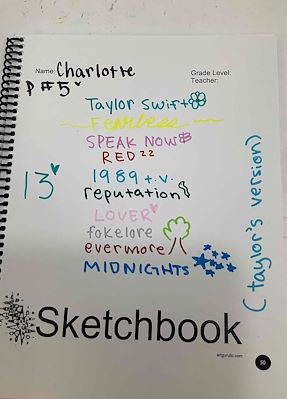 Name: Charlotte
Grade Level:
Teacher:
P #5
Taylor Swift
Fearless
SPEAK NOW
RED 22
1989 t.v.
13
reputation
LOVER
fokelore
evermore
MIDNIGHTS
(taylor's version)
Sketchbook
artgurullc.com
SD